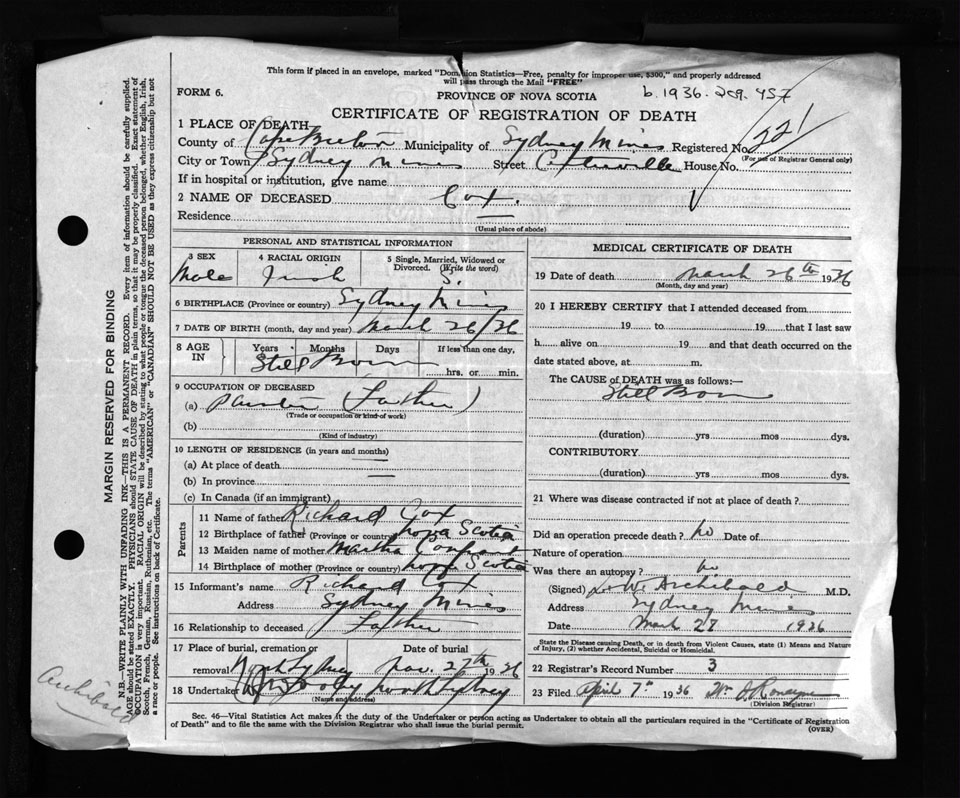 This form if placed in an envelope, marked "Dominion Statistics—Free, penalty for improper use, $300," and properly addressed
will pass through the Mail "FREE"
FORM 6.
PROVINCE OF NOVA SCOTIA
b. 1936. 209. 457
CERTIFICATE OF REGISTRATION OF DEATH
1 PLACE OF DEATH
County of Cape Breton Municipality of Sydney Mines Registered No. 221
(For use of Registrar General only)
City or Town Sydney Mines Street House No.
If in hospital or institution, give name
2 NAME OF DECEASED Cox.
Residence —
(Usual place of abode)
PERSONAL AND STATISTICAL INFORMATION
3 SEX 4 RACIAL ORIGIN 5 Single, Married, Widowed or Divorced. (Write the word)
Male Irish S.
6 BIRTHPLACE (Province or country) Sydney Mines
7 DATE OF BIRTH (month, day and year) March 26/36
8 AGE IN Years Months Days If less than one day,
Still Born hrs. or min.
9 OCCUPATION OF DECEASED
(a) (Father)
(Trade or occupation or kind of work)
(b)
(Kind of industry)
10 LENGTH OF RESIDENCE (in years and months)
(a) At place of death
(b) In province
(c) In Canada (if an immigrant)
Parents
11 Name of father Richard Cox
12 Birthplace of father (Province or country) Nova Scotia
13 Maiden name of mother Martha
14 Birthplace of mother (Province or country) Nova Scotia
15 Informant's name Richard Cox
Address Sydney Mines
16 Relationship to deceased Father
17 Place of burial, cremation or removal Date of burial
North Sydney 27th 1936
18 Undertaker North Sydney
(Name and address)
MEDICAL CERTIFICATE OF DEATH
19 Date of death March 26th 1936
(Month, day and year)
20 I HEREBY CERTIFY that I attended deceased from
19 to 19 that I last saw
h alive on 19 and that death occurred on the
date stated above, at m.
The CAUSE of DEATH was as follows:—
Still Born
(duration) yrs mos dys.
CONTRIBUTORY
(duration) yrs mos dys.
21 Where was disease contracted if not at place of death?
Did an operation precede death? No Date of
Nature of operation
Was there an autopsy? No
(Signed) L. W. Archibald M.D.
Address Sydney Mines
Date March 27 1936
State the Disease causing Death, or in death from Violent Causes, state (1) Means and Nature
of Injury, (2) whether Accidental, Suicidal or Homicidal.
22 Registrar's Record Number 3
23 Filed April 7th 1936
(Division Registrar)
Sec. 46—Vital Statistics Act makes it the duty of the Undertaker or person acting as Undertaker to obtain all the particulars required in the "Certificate of Registration
of Death" and to file the same with the Division Registrar who shall issue the burial permit.
(OVER)
MARGIN RESERVED FOR BINDING
N.B.—WRITE PLAINLY WITH UNFADING INK—THIS IS A PERMANENT RECORD. Every item of information should be carefully supplied.
AGE should be stated EXACTLY. PHYSICIANS should STATE CAUSE OF DEATH in plain terms, so that it may be properly classified. Exact statement of
OCCUPATION is very important. RACIAL ORIGIN will be described by stating to what people or tongue the deceased person belonged, whether English, Irish,
Scotch, French, German, Russian, Ruthenian, etc. The terms "AMERICAN" or "CANADIAN" SHOULD NOT BE USED as they express citizenship but not
a race or people. See instructions on back of Certificate.
Archibald